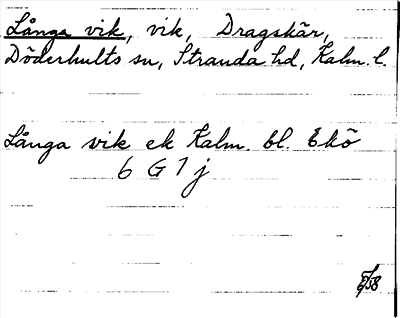 Långa vik, vik, Dragskär,
Döderhults sn, Stranda hd, Kalm. l.
Långa vik ek Kalm. bl. Ekö
6 G 7 j